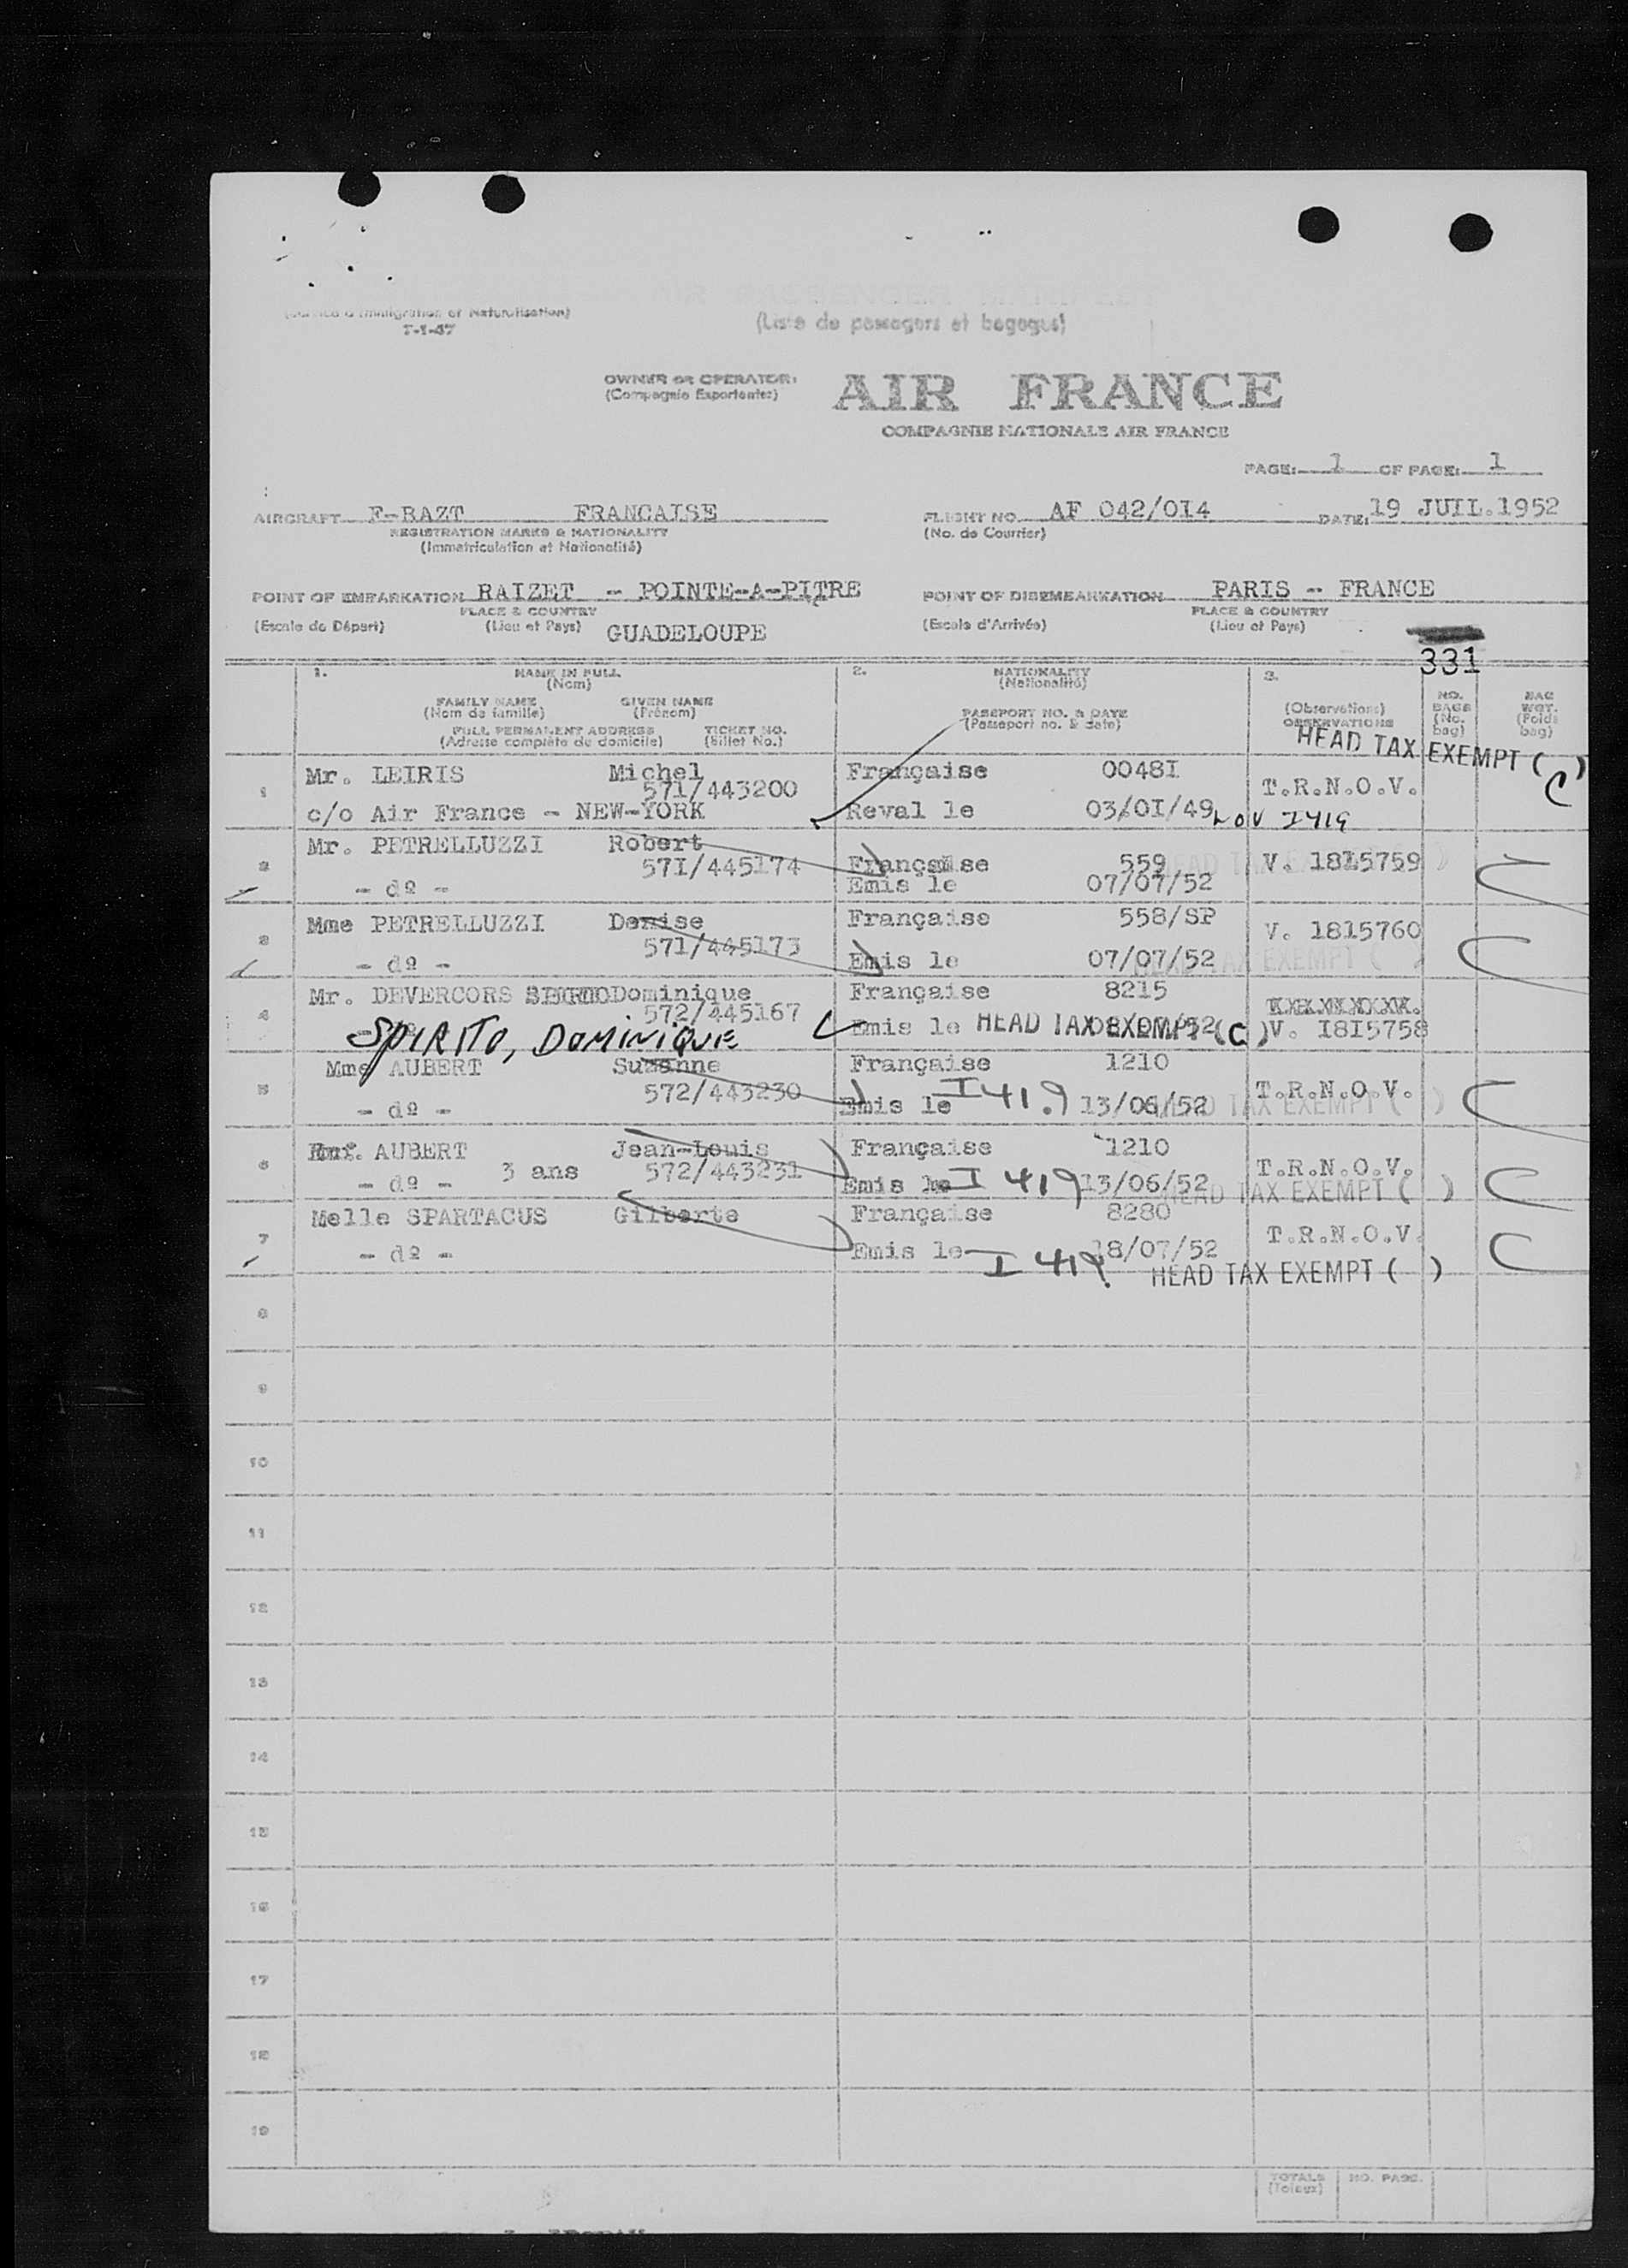 AIR PASSENGER MANIFEST
(Service d'Immigration et Naturalisation)
7-1-47
(Liste de passagers et bagages)
OWNER OR OPERATOR:
(Compagnie Exportante:)
AIR FRANCE
COMPAGNIE NATIONALE AIR FRANCE
PAGE: 1 OF PAGE: 1
AIRCRAFT F-BAZT FRANCAISE
REGISTRATION MARKS & NATIONALITY
(Immatriculation et Nationalité)
FLIGHT NO. AF 042/0I4
(No. de Courrier)
DATE: 19 JUIL.1952
POINT OF EMBARKATION RAIZET - POINTE-A-PITRE
PLACE & COUNTRY
(Escale de Départ) (Lieu et Pays) GUADELOUPE
POINT OF DISEMBARKATION PARIS - FRANCE
PLACE & COUNTRY
(Escale d'Arrivée) (Lieu et Pays)
331
1. NAME IN FULL
(Nom)
FAMILY NAME GIVEN NAME
(Nom de famille) (Prénom)
FULL PERMANENT ADDRESS TICKET NO.
(Adresse complète de domicile) (Billet No.)
2. NATIONALITY
(Nationalité)
PASSPORT NO. & DATE
(Passeport no. & date)
3.
(Observations)
OBSERVATIONS
NO. BAGS (No. bag)
BAG WGT. (Poids bag)
HEAD TAX EXEMPT (C)
1 Mr. LEIRIS Michel Française 0048I T.R.N.O.V.
571/443200
c/o Air France - NEW-YORK Reval le 03/0I/49 I419
2 Mr. PETRELLUZZI Robert Française 559 V. 1815759
57I/445174
- dº - Emis le 07/07/52
HEAD TAX EXEMPT ( )
3 Mme PETRELLUZZI Denise Française 558/SP V. 1815760
571/445173
- dº - Emis le 07/07/52
HEAD TAX EXEMPT (
4 Mr. DEVERCORS Dominique Française 8215
572/445167
SPIRITO, DOMINIQUE Emis le HEAD TAX EXEMPT (C) V. I8I5758
5 Mme AUBERT Suzanne Française 1210 T.R.N.O.V.
572/443230
- dº - Emis le I419 13/06/52
HEAD TAX EXEMPT ( )
6 Enf. AUBERT Jean-Louis Française 1210 T.R.N.O.V.
- dº - 3 ans 572/443231 Emis le I 419 13/06/52
HEAD TAX EXEMPT ( )
7 Melle SPARTACUS Gilberte Française 8280 T.R.N.O.V.
- dº - Emis le I 419 18/07/52
HEAD TAX EXEMPT ( )
8
9
10
11
12
13
14
15
16
17
18
19
TOTALS
(Totaux)
NO. PASS.